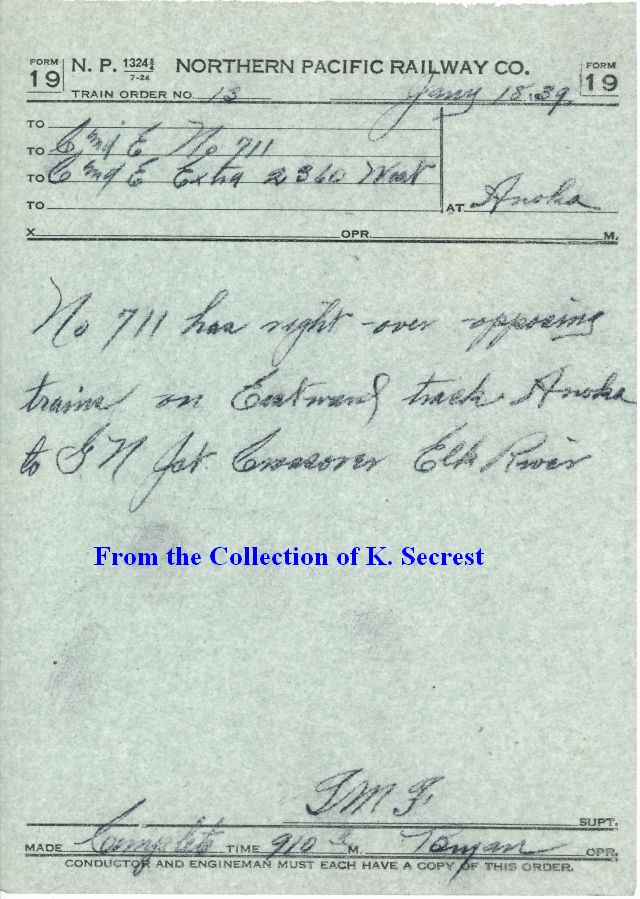 FORM 19 N. P. 1324½ 7-24 NORTHERN PACIFIC RAILWAY CO. FORM 19
TRAIN ORDER NO. 13 Jany 18 1939.
TO
TO C and E No 711
TO C and E Extra 2360 West
TO AT Anoka
X OPR. M.
No 711 has right over opposing
trains on Eastward track Anoka
to G N Jct Crossover Elk River
From the Collection of K. Secrest
SUPT.
MADE Complete TIME 910 M. OPR.
CONDUCTOR AND ENGINEMAN MUST EACH HAVE A COPY OF THIS ORDER.